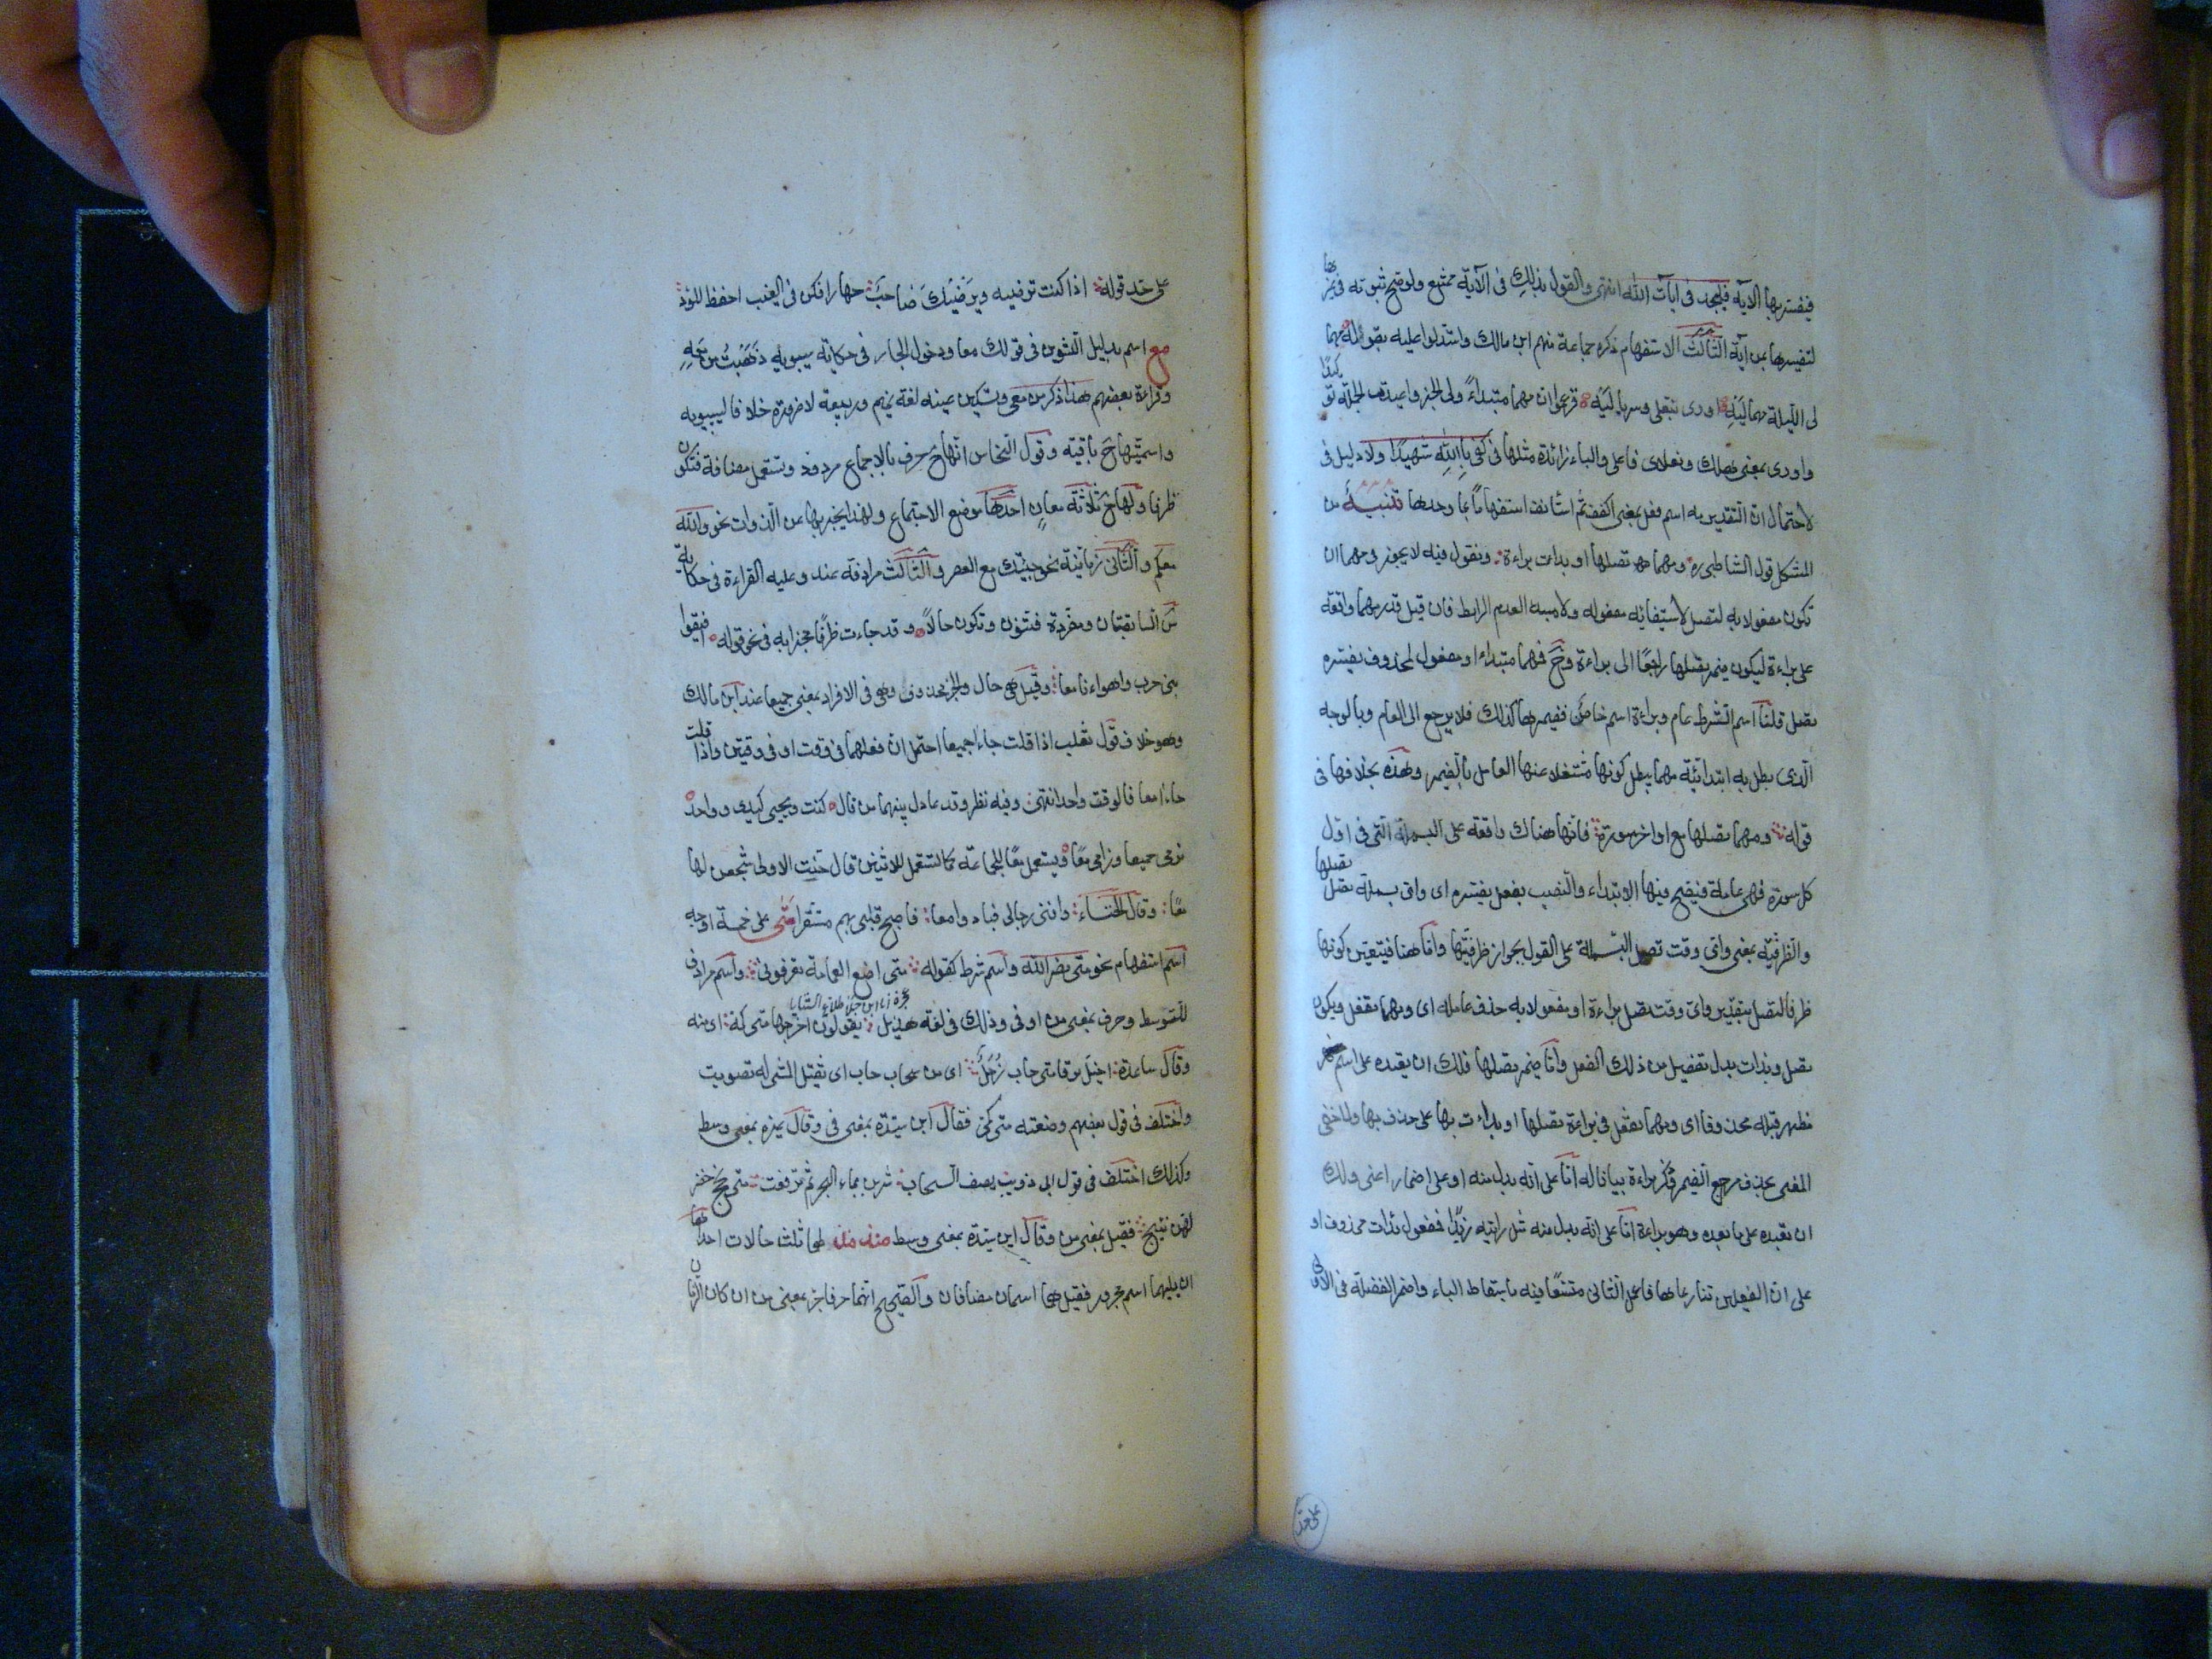 فيفسر بها الآية فيلحد في آيات الله انتهى والقول بذلك في الآية ممتنع ولو صح ثبوته في غيرها
لتفسيرها بمن آية الثالث الاستفهام ذكره جماعة منهم ابن مالك واستدلوا عليه بقوله مهما
لى الليلة مهما ليه اودى بنعلى وسرباليه فزعموا ان مهما مبتداءً ولى الخبر واعيدت الجملة توكيدًا
واودى بمعنى هلك ونعلاى فاعل والباء زائدة مثلها في كفى بالله شهيدًا ولا دليل فى
لاحتمال ان التقدير مه اسم فعل بمعنى اكفف ثم استأنف استفهامًا بما وحدها تنبيه من
المشكل قول الشاطبى ره ومهما تصلها او بدات براءة ونقول فيه لا يجوز في مهما ان
تكون مفعولا به لتصل لاستيفائه مفعوله ولا مبتدا لعدم الرابط فان قيل قدر مهما واقعة
على براءة ليكون ضمير تصلها راجعًا الى براءة وح فمهما مبتداء او مفعول لمحذوف يفسره
تصل قلنا اسم الشرط عام وبراءة اسم خاص فضميرها كذلك فلا يرجع الى العام وبالوجه
الذى بطل به ابتدائية مهما يبطل كونها مشتغلا عنها العامل بالضمير وهذه بخلافها فى
قوله ومهما تصلها مع اواخر سورة فانها هناك واقعة على البسملة التى فى اول
كل سورة فهى عامة فيصح فيها الابتداء والنصب بفعل يفسره اى واى بسملة تصل تصلها
والظرفية بمعنى واى وقت تصل البسملة على القول بجواز ظرفيتها واما هنا فيتعين كونها
ظرفا لتصل بتقدير واى وقت تصل براءة او مفعولا به حذف عامله اى ومهما تفعل ويكون
تصل وبدات بدل تفصيل من ذلك الفعل واما ضمير تصلها فلك ان تعيده على اسم
مظهر قبله محذوفا اى ومهما تفعل فى براءة تصلها او بداءت بها على حذف بها ولما خفى
المعنى بحذف مرجع الضمير ذكر براءة بيانا له اما على انه بدل منه او على اضمار اعنى ولك
ان تعيده على ما بعده وهو براءة اما على انه بدل منه مثل رايته زيدًا فمفعول بدات محذوف او
على ان الفعلين تنازعاها فاعمل الثانى متسعًا فيه باسقاط الباء واضمر الفضلة فى الاول
على حد
على حد قوله اذا كنت ترضيه ويرضيك صاحب جهارا فكن فى الغيب احفظ للود
مع اسم بدليل التنوين فى قولك معا ودخول الجار فى حكاية سيبويه ذهبت من معه
وقراءة بعضهم هذا ذكر من معى وتسكين عينه لغة غنم وربيعة لا ضرورة خلافا لسيبويه
واسميتها ح باقية وقول النحاس انها ح حرف بالاجماع مردود وتستعمل مضافة فتكون
ظرفا ولها ح ثلاثة معان احدها موضع الاجتماع ولهذا يخبر بها عن الذوات نحو والله
معكم والثانى زمانه نحو جئتك مع العصر والثالث مرادفة عند وعليه القراءة فى حكاية
س السابقتان ومفردة فتنون وتكون حالاً وقد جاءت ظرفًا مخبرا به فى نحو قوله افيقوا
بنى حرب واهواءنا معا وقيل هى حال والخبر محذوف وهى فى الافراد بمعنى جميعا عند ابن مالك
وهو خلاف قول ثعلب اذا قلت جاءا جميعا احتمل ان فعلهما فى وقت او فى وقتين واذا قلت
جاءا معا فالوقت واحد انتهى وفيه نظر وقد عادل بينهما من قال كنت ويحيى كيدى وواحد
نرمى جميعا ونرامى معًا وتستعمل معًا للجماعة كما تستعمل للاثنين قال حنت الاولى سجعن لها
معًا وقال الخنساء وافنى رجالى فبادوا معا فاصبح قلبى بهم مستفزا متى على خمسة اوجه
اسم استفهام نحو متى نصر الله واسم شرط كقوله متى اضع العمامة تعرفونى واسم مرادف
للوسط وحرف بمعنى من او فى وذلك فى لغة هذيل يقولون اخرجها متى كمه اى منه
وقال ساعدة اخيل برقا متى حاب زجل اى من سحاب حاب اى ثقيل المشى له تصويت
واختلف فى قول بعضهم وضعته متى كمى فقال ابن سيدة بمعنى فى وقال غيره بمعنى وسط
وكذلك اختلف فى قول ابى ذويب يصف السحاب شربن بماء البحر ثم ترفعت متى لجج خضر
لهن نئيج فقيل بمعنى من وقال ابن سيدة بمعنى وسط منذ مذ لهما ثلث حالات احداها
ان يليهما اسم مجرور فقيل هما اسمان مضافان والصحيح انهما حرفا جر بمعنى من ان كان الزمان